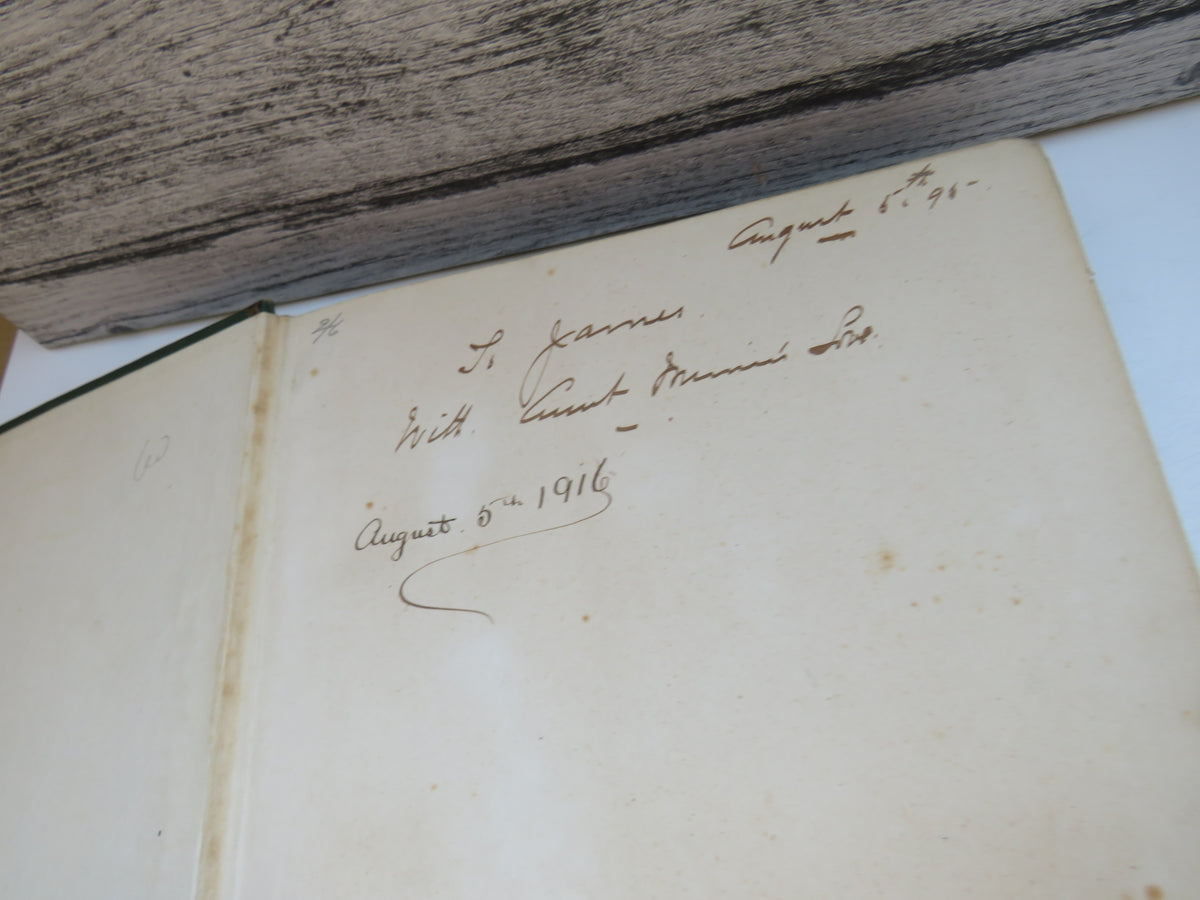 August 5th 95-
2/6
To James.
With Aunt Minnie's Love.
August. 5th 1916